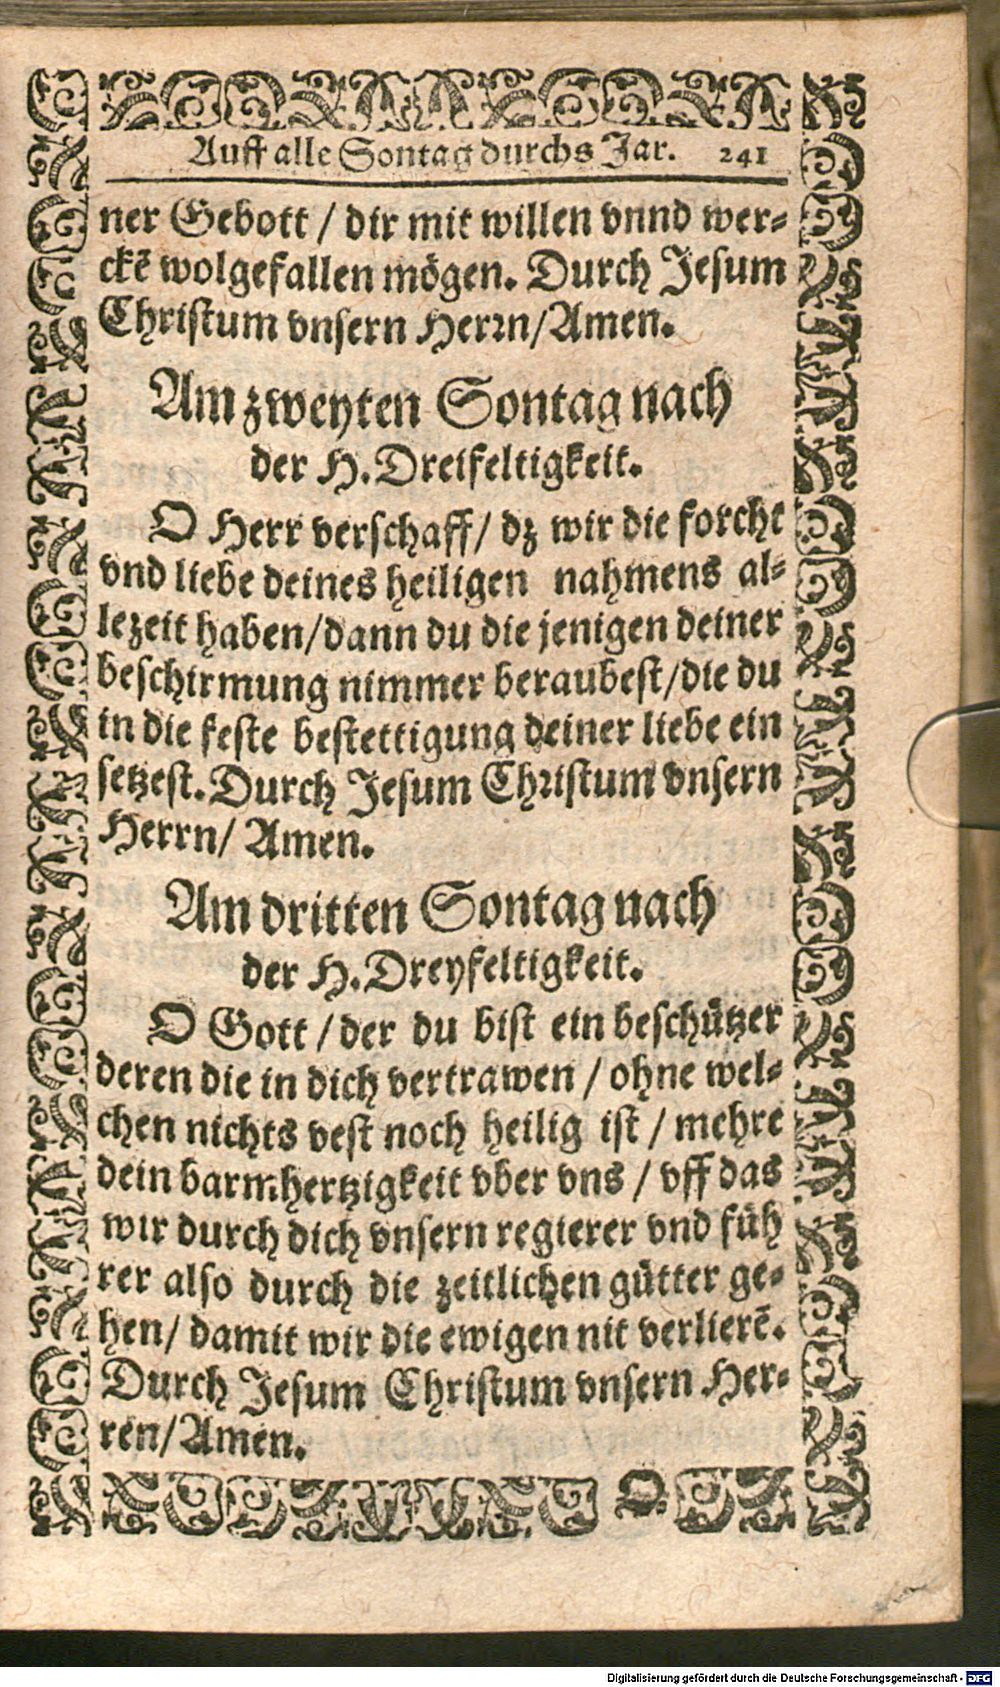 Auff alle Sontag durchs Jar. 241
ner Gebott / dir mit willen vnnd wer-
ckē wolgefallen mögen. Durch Jesum
Christum vnsern Herrn/Amen.
Am zweyten Sontag nach
der H. Dreifeltigkeit.
O Herr verschaff/ dz wir die forcht
vnd liebe deines heiligen nahmens al-
lezeit haben/dann du die jenigen deiner
beschirmung nimmer beraubest/die du
in die feste bestettigung deiner liebe ein
setzest. Durch Jesum Christum vnsern
Herrn/ Amen.
Am dritten Sontag nach
der H. Dreyfeltigkeit.
O Gott / der du bist ein beschützer
deren die in dich vertrawen / ohne wel-
chen nichts vest noch heilig ist / mehre
dein barmhertzigkeit vber vns / vff das
wir durch dich vnsern regierer vnd füh
rer also durch die zeitlichen gütter ge-
hen/ damit wir die ewigen nit verlierē.
Durch Jesum Christum vnsern Her-
ren/Amen.
Digitalisierung gefördert durch die Deutsche Forschungsgemeinschaft - DFG